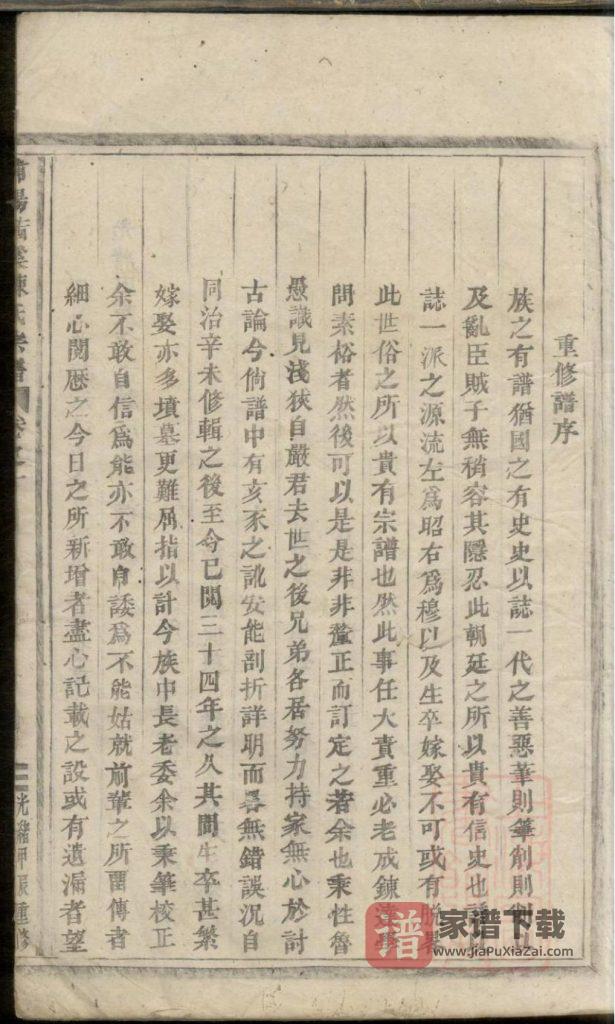 重修譜序
族之有譜猶國之有史史以誌一代之善惡筆則筆削則削
及亂臣賊子無稍容其隱忍此朝廷之所以貴有信史也譜
誌一派之源流左爲昭右爲穆以及生卒嫁娶不可或有脫畧
此世俗之所以貴有宗譜也然此事任大責重必老成鍊達學
問素裕者然後可以是是非非釐正而訂定之若余也秉性魯
愚識見淺狹自嚴君去世之後兄弟各居努力持家無心於討
古論今倘譜中有亥豕之訛安能剖折詳明而畧無錯誤況自
同治辛未修輯之後至今已閱三十四年之久其間生卒甚繁
嫁娶亦多墳墓更難屈指以計今族中長老委余以秉筆校正
余不敢自信爲能亦不敢自諉爲不能姑就前輩之所畱傳者
細心閱歷之今日之所新增者盡心記載之設或有遺漏者望
陳氏宗譜 卷之一
光緒甲辰重修
譜 家谱下载
www.JiaPuXiaZai.com